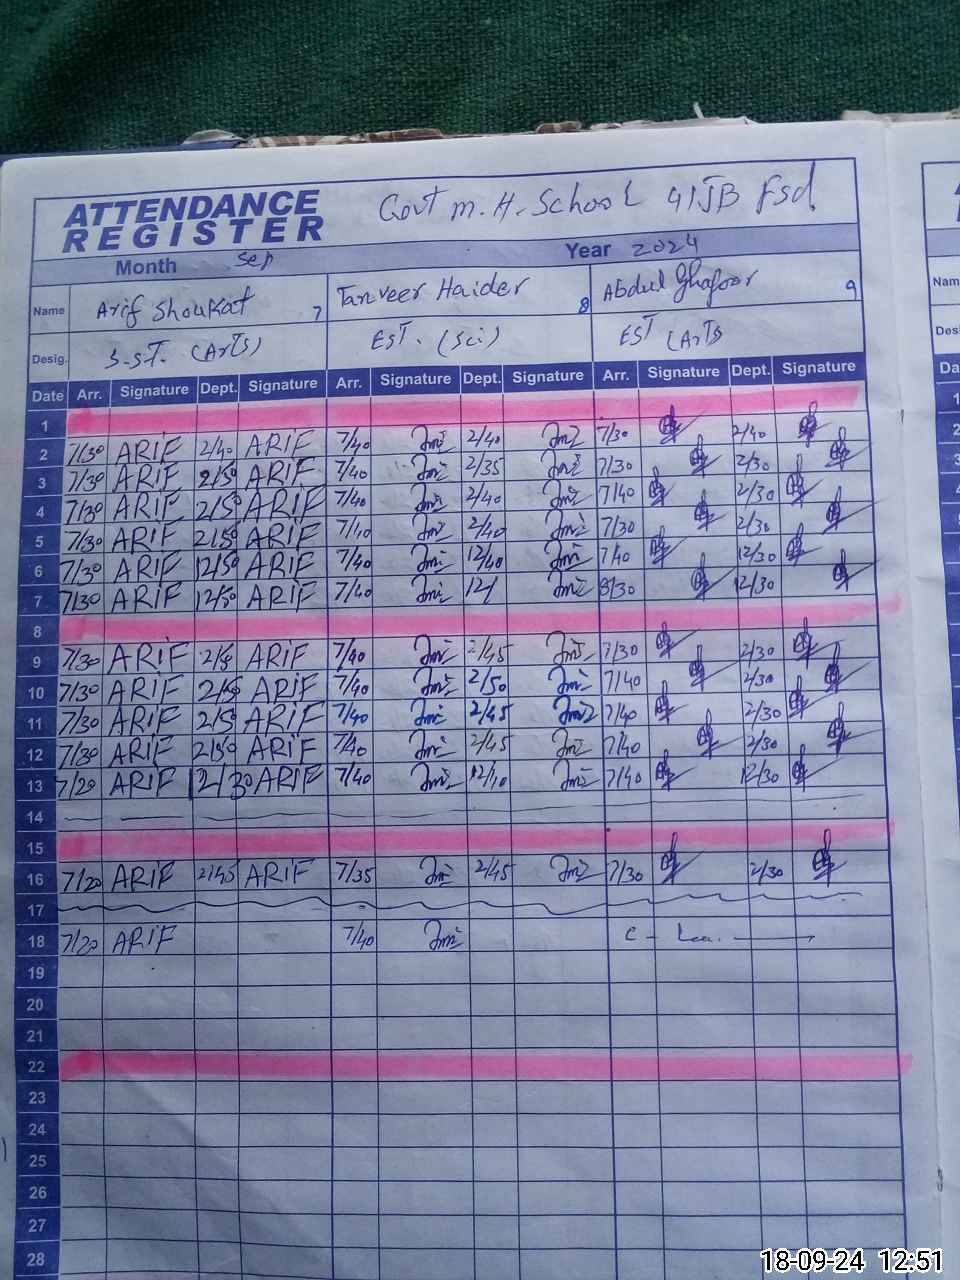 ATTENDANCE REGISTER Govt M. H. School 41JB Fsd
Month Sep Year 2024
Name Arif Shoukat 7 Tanveer Haider 8 Abdul Ghafoor 9
Desig. S.S.T. (Arts) EST. (Sci) EST (Arts
Date Arr. Signature Dept. Signature Arr. Signature Dept. Signature Arr. Signature Dept. Signature
1
2 7/30 ARIF 2/40 ARIF 7/40 2/40 7/30 2/40
3 7/30 ARIF 2/50 ARIF 7/40 2/35 7/30 2/30
4 7/30 ARIF 2/50 ARIF 7/40 2/40 7/40 2/30
5 7/30 ARIF 2/50 ARIF 7/40 2/40 7/30 2/30
6 7/30 ARIF 12/50 ARIF 7/40 12/40 7/40 12/30
7 7/30 ARIF 12/50 ARIF 7/40 12/ 8/30 12/30
8
9 7/30 ARIF 2/50 ARIF 7/40 2/45 7/30 2/30
10 7/30 ARIF 2/50 ARIF 7/40 2/50 7/40 2/30
11 7/30 ARIF 2/50 ARIF 7/40 2/45 7/40 2/30
12 7/30 ARIF 2/50 ARIF 7/40 2/45 7/40 2/30
13 7/20 ARIF 12/30 ARIF 7/40 12/40 7/40 12/30
14
15
16 7/20 ARIF 2/45 ARIF 7/35 2/45 7/30 2/30
17
18 7/20 ARIF 7/40 C-
19
20
21
22
23
24
25
26
27
28
18-09-24 12:51